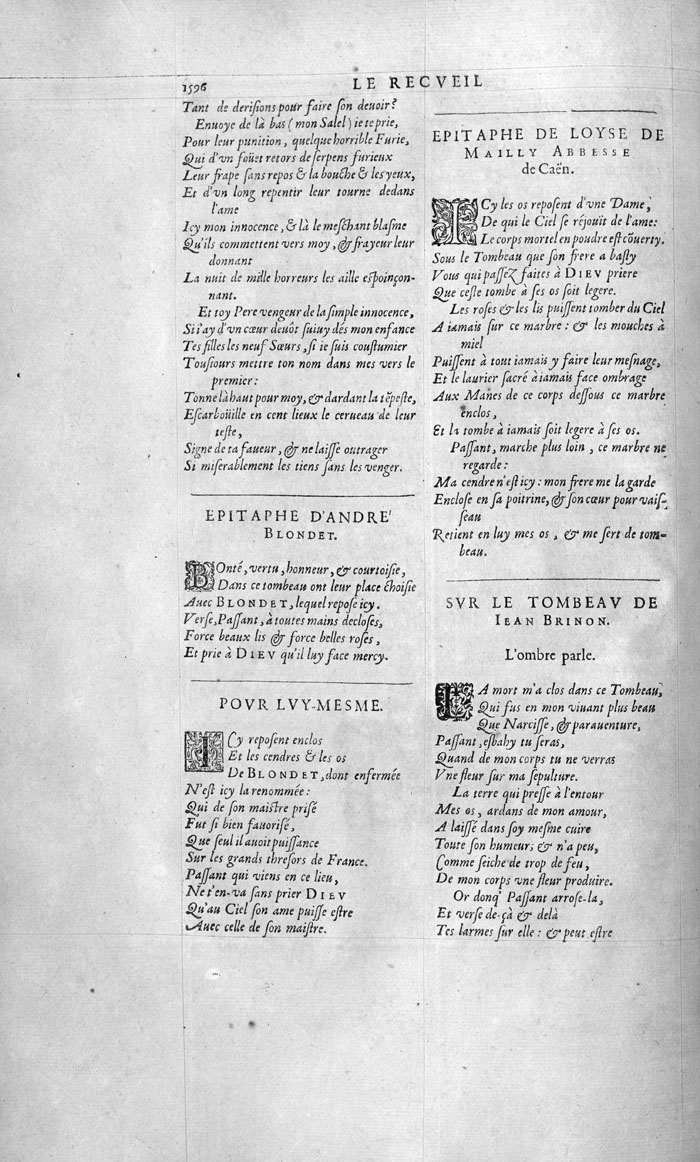 1596
LE RECVEIL
Tant de derisions pour faire son deuoir?
Enuoye de là bas (mon Salel) ie te prie,
Pour leur punition, quelque horrible Furie,
Qui d'vn foüet retors de serpens furieux
Leur frape sans repos & la bouche & les yeux,
Et d'vn long repentir leur tourne dedans
l'ame
Icy mon innocence, & là le meschant blasme
Qu'ils commettent vers moy, & frayeur leur
donnant
La nuit de mille horreurs les aille espoinçon-
nant.
Et toy Pere vengeur de la simple innocence,
Si i'ay d'vn cœur deuôt suiuy dés mon enfance
Tes filles les neuf Sœurs, si ie suis coustumier
Tousiours mettre ton nom dans mes vers le
premier:
Tonne là haut pour moy, & dardant la tẽpeste,
Escarboüille en cent lieux le cerueau de leur
teste,
Signe de ta faueur, & ne laisse outrager
Si miserablement les tiens sans les venger.
EPITAPHE D'ANDRE'
BLONDET.
BOnté, vertu, honneur, & courtoisie,
Dans ce tombeau ont leur place choisie
Auec BLONDET, lequel repose icy.
Verse, Passant, à toutes mains decloses,
Force beaux lis & force belles roses,
Et prie à DIEV qu'il luy face mercy.
POVR LVY-MESME.
ICy reposent enclos
Et les cendres & les os
De BLONDET, dont enfermée
N'est icy la renommée:
Qui de son maistre prisé
Fut si bien fauorisé,
Que seul il auoit puissance
Sur les grands thresors de France.
Passant qui viens en ce lieu,
Ne t'en-va sans prier DIEV
Qu'au Ciel son ame puisse estre
Auec celle de son maistre.
EPITAPHE DE LOYSE DE
MAILLY ABBESSE
de Caën.
ICy les os reposent d'vne Dame,
De qui le Ciel se réjouit de l'ame:
Le corps mortel en poudre est couuerty.
Sous le Tombeau que son frere a basty
Vous qui passez faites à DIEV priere
Que ceste tombe à ses os soit legere.
Les roses & les lis puissent tomber du Ciel
A iamais sur ce marbre: & les mouches à
miel
Puissent à tout iamais y faire leur mesnage,
Et le laurier sacré à iamais face ombrage
Aux Manes de ce corps dessous ce marbre
enclos,
Et la tombe à iamais soit legere à ses os.
Passant, marche plus loin, ce marbre ne
regarde:
Ma cendre n'est icy: mon frere me la garde
Enclose en sa poitrine, & son cœur pour vais-
seau
Retient en luy mes os, & me sert de tom-
beau.
SVR LE TOMBEAV DE
IEAN BRINON.
L'ombre parle.
LA mort m'a clos dans ce Tombeau,
Qui fus en mon viuant plus beau
Que Narcisse, & parauenture,
Passant, esbahy tu seras,
Quand de mon corps tu ne verras
Vne fleur sur ma sepulture.
La terre qui presse à l'entour
Mes os, ardans de mon amour,
A laissé dans soy mesme cuire
Toute son humeur, & n'a peu,
Comme seiche de trop de feu,
De mon corps vne fleur produire.
Or donq' Passant arrose-la,
Et verse de-çà & delà
Tes larmes sur elle: & peut estre